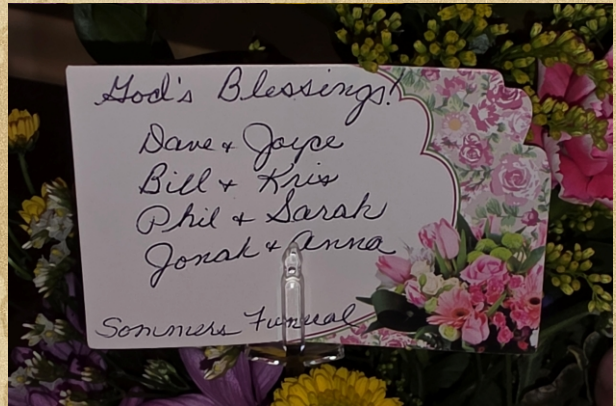 God's Blessings!
Dave + Joyce
Bill + Kris
Phil + Sarah
Jonah + Anna
Sommers Funeral